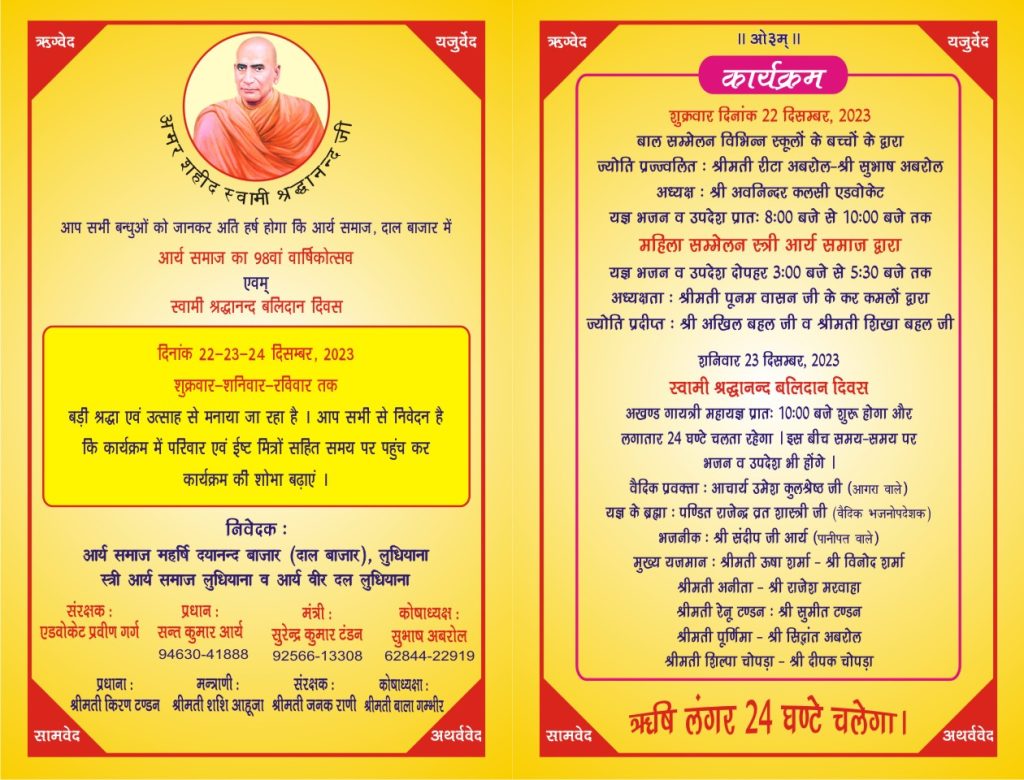 ऋग्वेद
यजुर्वेद
अमर शहीद स्वामी श्रद्धानन्द जी
आप सभी बन्धुओं को जानकर अति हर्ष होगा कि आर्य समाज, दाल बाजार में
आर्य समाज का 98वां वार्षिकोत्सव
एवम्
स्वामी श्रद्धानन्द बलिदान दिवस
दिनांक 22-23-24 दिसम्बर, 2023
शुक्रवार-शनिवार-रविवार तक
बड़ी श्रद्धा एवं उत्साह से मनाया जा रहा है । आप सभी से निवेदन है
कि कार्यक्रम में परिवार एवं ईष्ट मित्रों सहित समय पर पहुंच कर
कार्यक्रम की शोभा बढ़ाएं ।
निवेदक :
आर्य समाज महर्षि दयानन्द बाजार (दाल बाजार), लुधियाना
स्त्री आर्य समाज लुधियाना व आर्य वीर दल लुधियाना
संरक्षक : प्रधान : मंत्री : कोषाध्यक्ष :
एडवोकेट प्रवीण गर्ग सन्त कुमार आर्य सुरेन्द्र कुमार टंडन सुभाष अबरोल
94630-41888 92566-13308 62844-22919
प्रधाना : मन्त्राणी : संरक्षक : कोषाध्यक्षा :
श्रीमती किरण टण्डन श्रीमती शशि आहूजा श्रीमती जनक राणी श्रीमती बाला गम्भीर
सामवेद
अथर्ववेद
ऋग्वेद
॥ ओ३म् ॥
यजुर्वेद
कार्यक्रम
शुक्रवार दिनांक 22 दिसम्बर, 2023
बाल सम्मेलन विभिन्न स्कूलों के बच्चों के द्वारा
ज्योति प्रज्ज्वलित : श्रीमती रीटा अबरोल-श्री सुभाष अबरोल
अध्यक्ष : श्री अवनिन्दर कलसी एडवोकेट
यज्ञ भजन व उपदेश प्रातः 8:00 बजे से 10:00 बजे तक
महिला सम्मेलन स्त्री आर्य समाज द्वारा
यज्ञ भजन व उपदेश दोपहर 3:00 बजे से 5:30 बजे तक
अध्यक्षता : श्रीमती पूनम वासन जी के कर कमलों द्वारा
ज्योति प्रदीप्त : श्री अखिल बहल जी व श्रीमती शिखा बहल जी
शनिवार 23 दिसम्बर, 2023
स्वामी श्रद्धानन्द बलिदान दिवस
अखण्ड गायत्री महायज्ञ प्रातः 10:00 बजे शुरू होगा और
लगातार 24 घण्टे चलता रहेगा । इस बीच समय-समय पर
भजन व उपदेश भी होंगे ।
वैदिक प्रवक्ता : आचार्य उमेश कुलश्रेष्ठ जी (आगरा वाले)
यज्ञ के ब्रह्मा : पण्डित राजेन्द्र व्रत शास्त्री जी (वैदिक भजनोपदेशक)
भजनीक : श्री संदीप जी आर्य (पानीपत वाले)
मुख्य यजमान : श्रीमती ऊषा शर्मा - श्री विनोद शर्मा
श्रीमती अनीता - श्री राजेश मरवाहा
श्रीमती रेनू टण्डन : श्री सुमीत टण्डन
श्रीमती पूर्णिमा - श्री सिद्वांत अबरोल
श्रीमती शिल्पा चोपड़ा - श्री दीपक चोपड़ा
सामवेद
ऋषि लंगर 24 घण्टे चलेगा।
अथर्ववेद